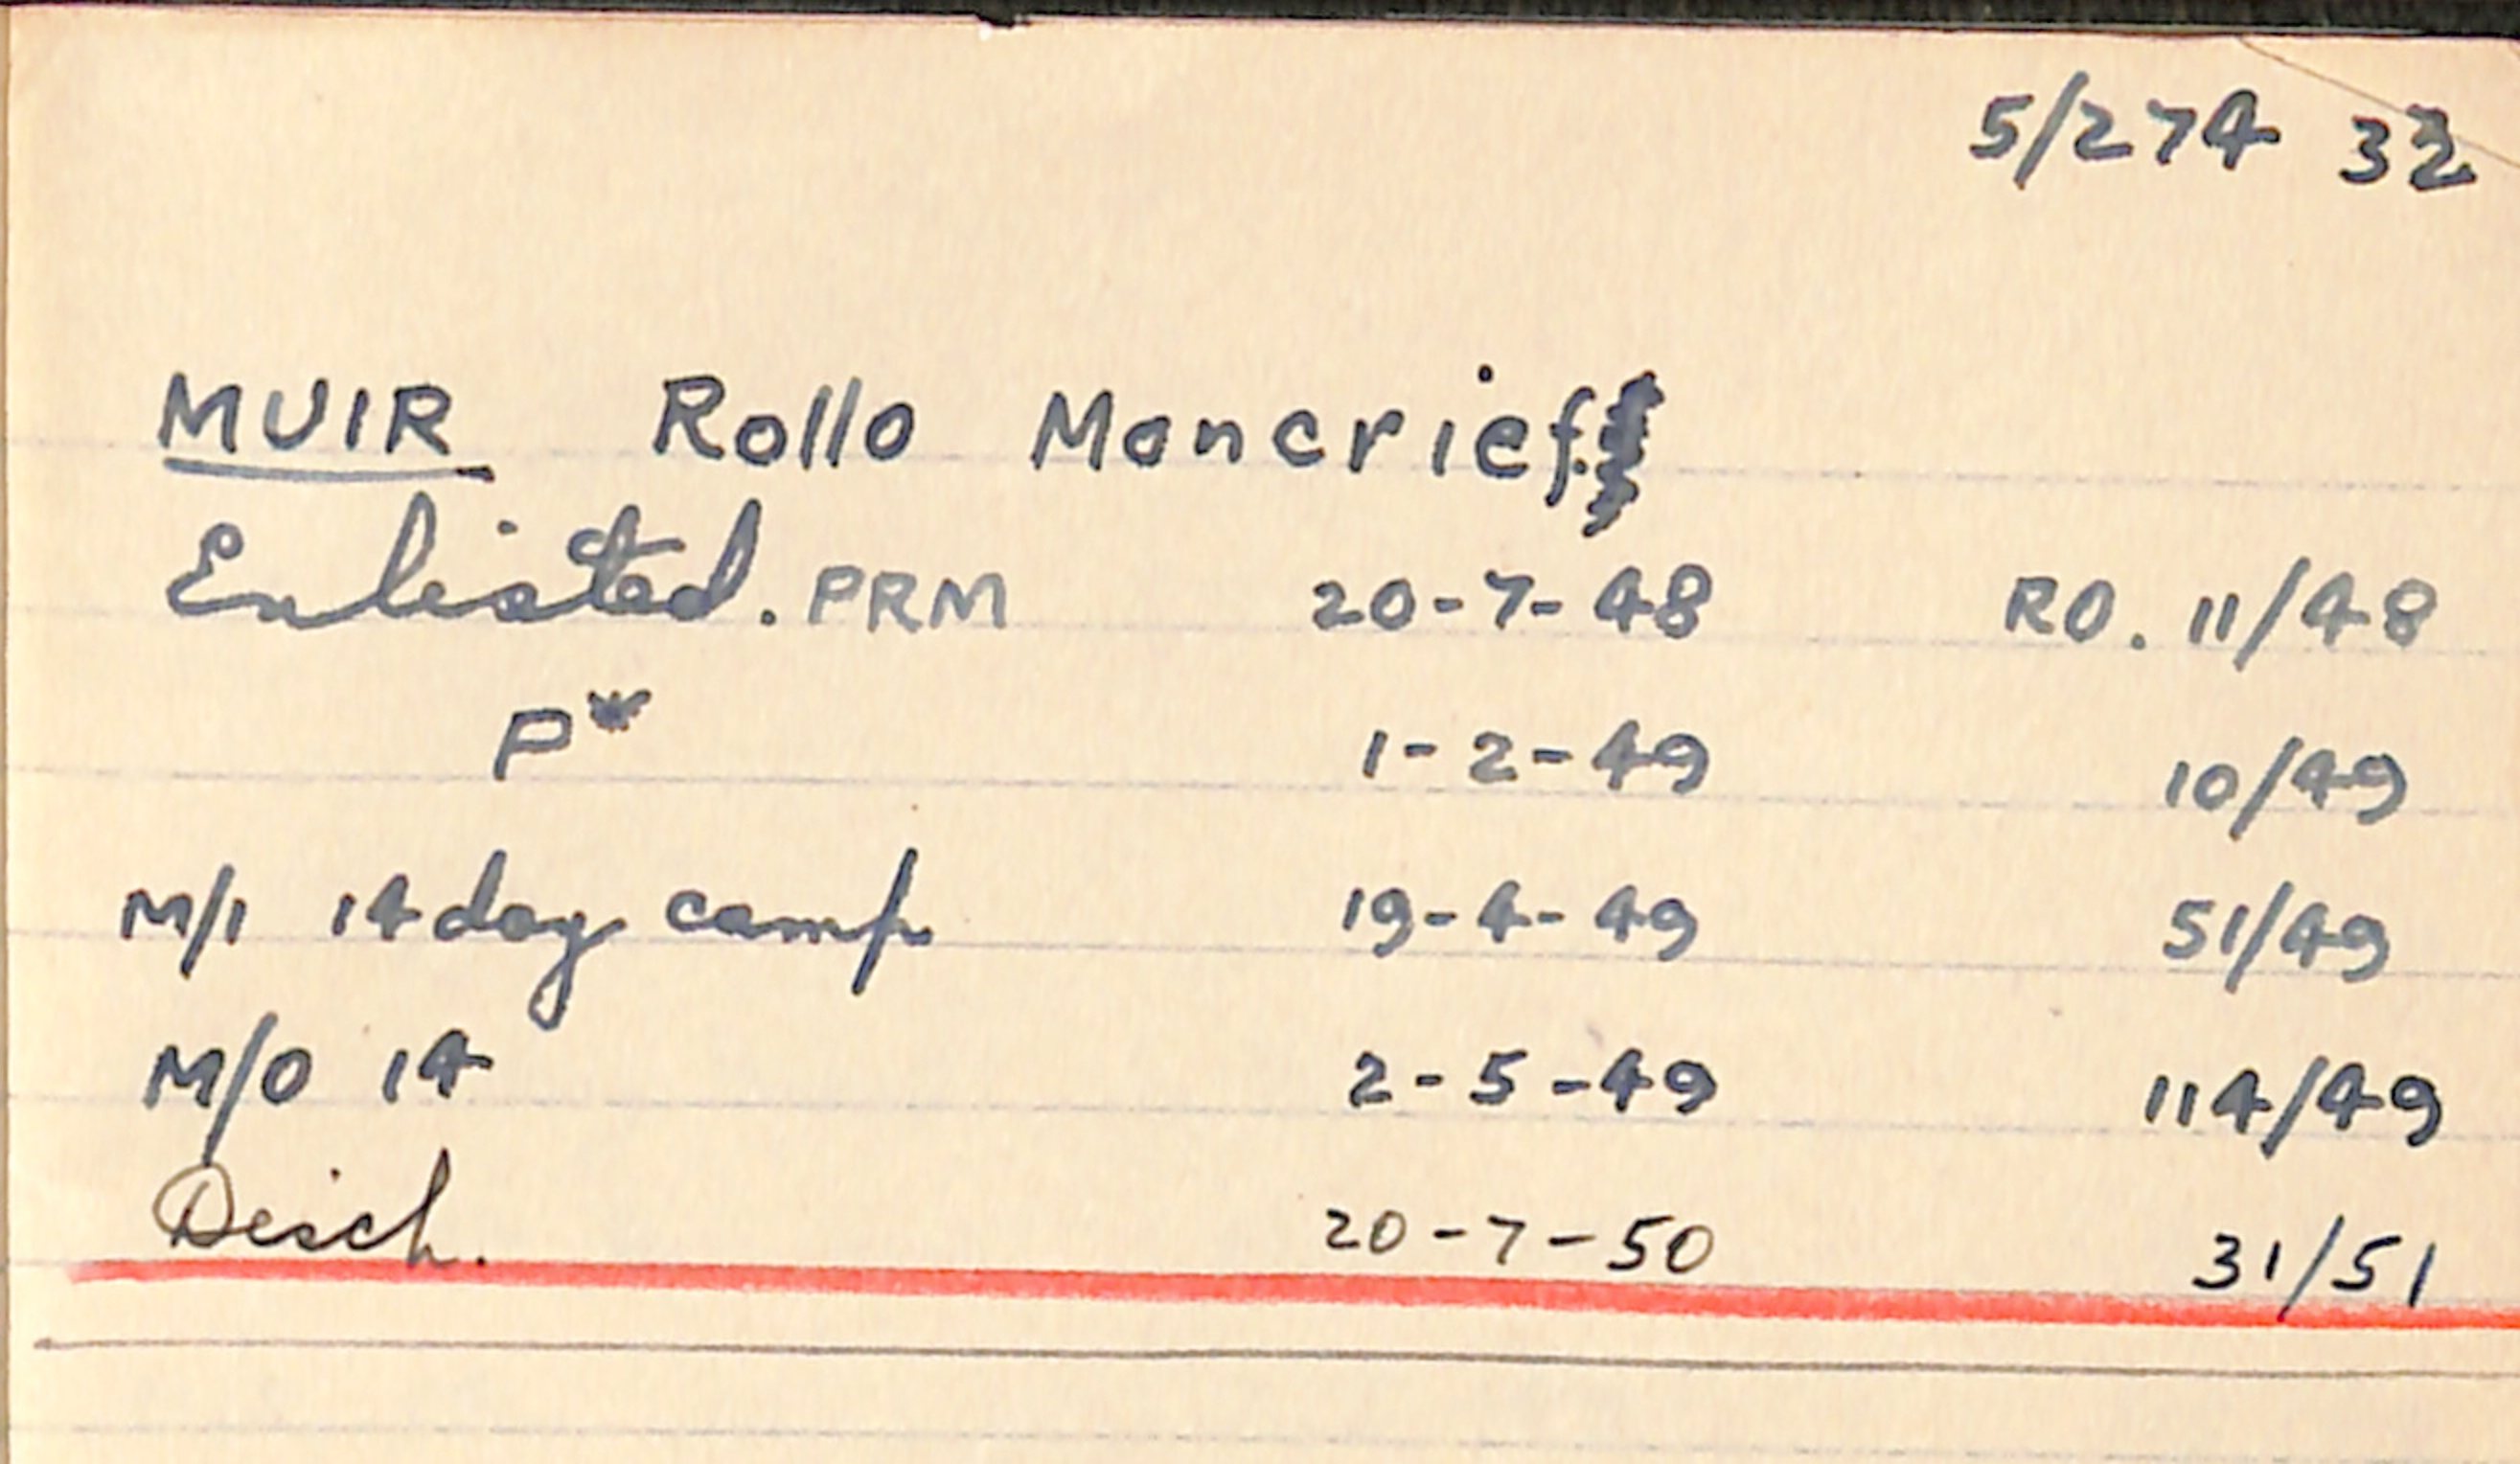 5/274 32
MUIR Rollo Moncrief
Enlisted. PRM 20-7-48 RO. 11/48
P* 1-2-49 10/49
M/I 14 day camp 19-4-49 51/49
M/O 14 2-5-49 114/49
Disch. 20-7-50 31/51